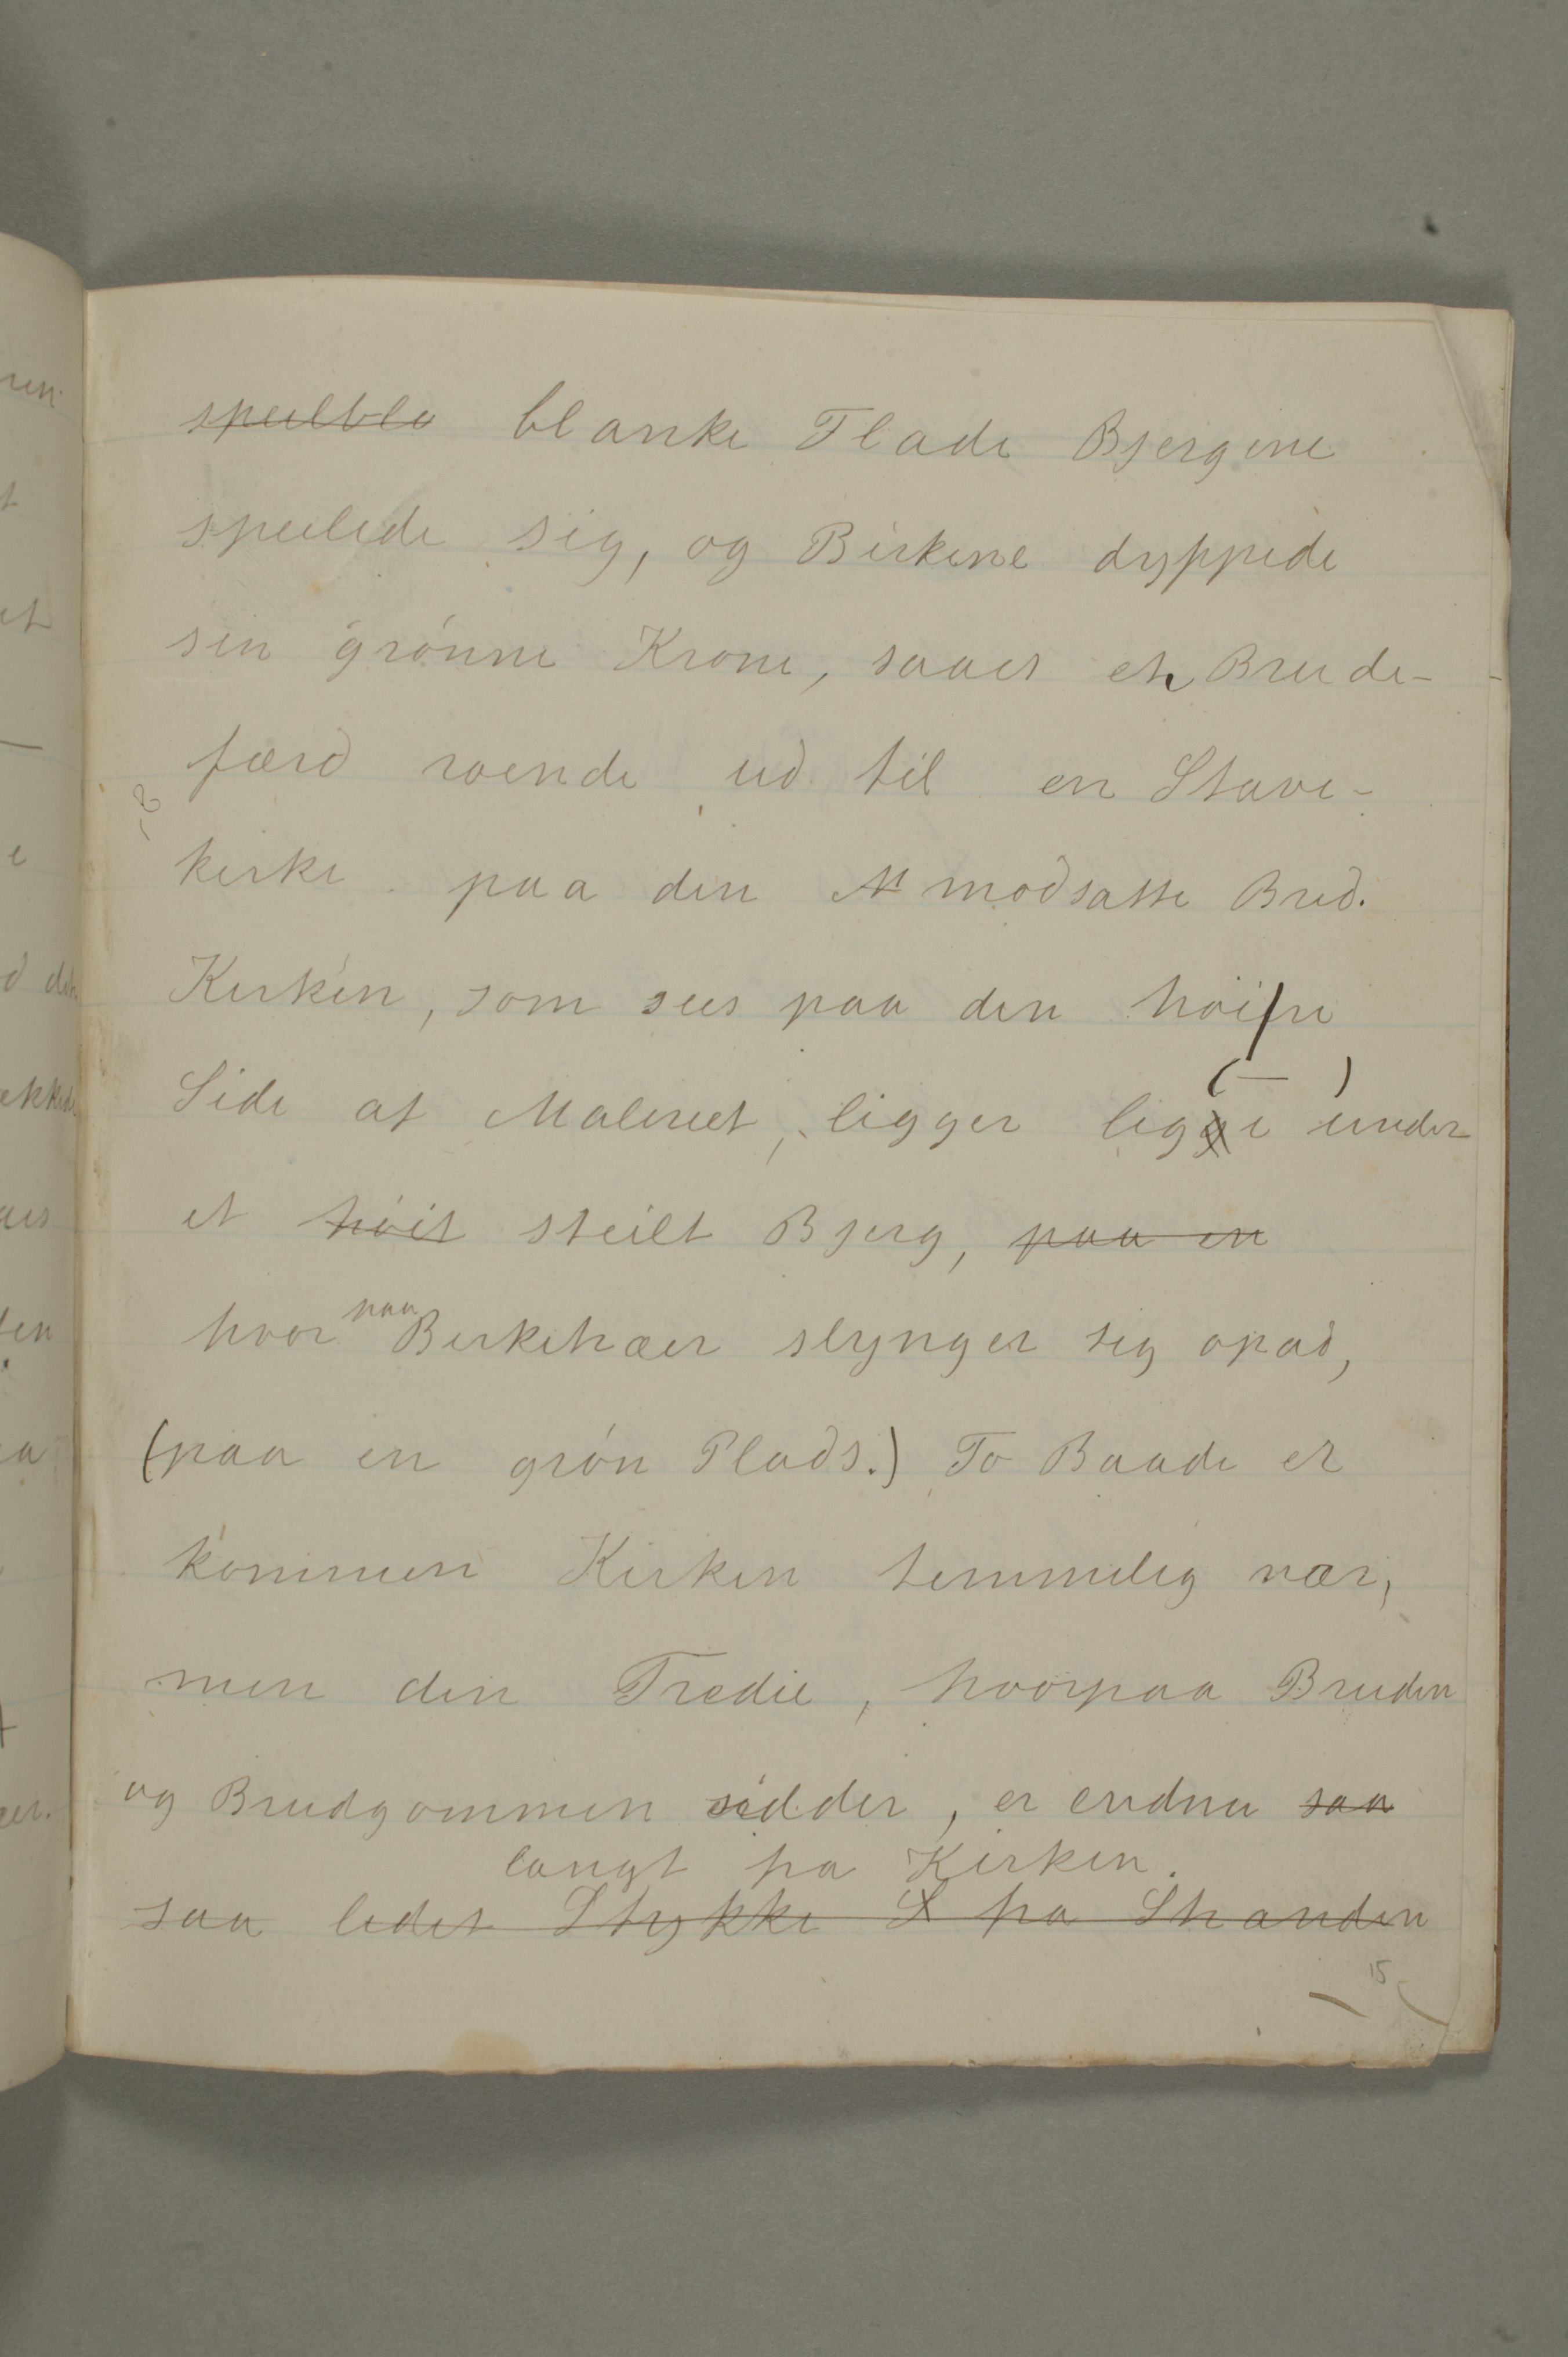 speilbla blanke Flade Bjergene
speilede sig, og Birkene dyppede
sin grønne Krone, saaes et Brude-
færd roende ud til en Stave-
kirke paa den M modsatte Bred.
Kirken, som sees paa den høire
Side af Maleriet, ligger ligge under
(— )
et høit steilt Bjerg, paa en
hvor paa Birketræer slynger sig opad,
(paa en grøn Plads.) To Baade er
kommen Kirken temmelig nær,
men den Tredie, hvorpaa Bruden
og Brudgommen sidder, er endnu saa
langt fra Kirken.
saa lidet Stykke S fra Stranden
15